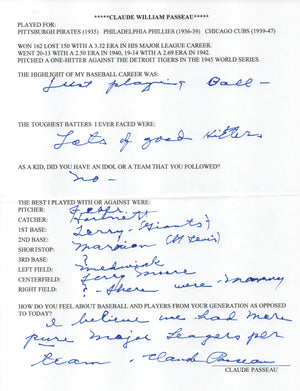 *****CLAUDE WILLIAM PASSEAU*****
PLAYED FOR:
PITTSBURGH PIRATES (1935) PHILADELPHIA PHILLIES (1936-39) CHICAGO CUBS (1939-47)
WON 162 LOST 150 WITH A 3.32 ERA IN HIS MAJOR LEAGUE CAREER.
WENT 20-13 WITH A 2.50 ERA IN 1940, 19-14 WITH A 2.69 ERA IN 1942.
PITCHED A ONE-HITTER AGAINST THE DETROIT TIGERS IN THE 1945 WORLD SERIES.
THE HIGHLIGHT OF MY BASEBALL CAREER WAS:
Just playing Ball -
THE TOUGHEST BATTERS I EVER FACED WERE:
Lots of good hitters
AS A KID, DID YOU HAVE AN IDOL OR A TEAM THAT YOU FOLLOWED?
no -
THE BEST I PLAYED WITH OR AGAINST WERE:
PITCHER: Feller.
CATCHER: Hartnett
1ST BASE: Terry - (Giants)
2ND BASE: ?
SHORTSTOP: Marion (St Louis)
3RD BASE: ?
LEFT FIELD: Medwick
CENTERFIELD: Terry Moore
RIGHT FIELD: ? - there were many
HOW DO YOU FEEL ABOUT BASEBALL AND PLAYERS FROM YOUR GENERATION AS OPPOSED
TO TODAY?
I believe we had more
pure major leagers per
team - Claude Passeau
CLAUDE PASSEAU